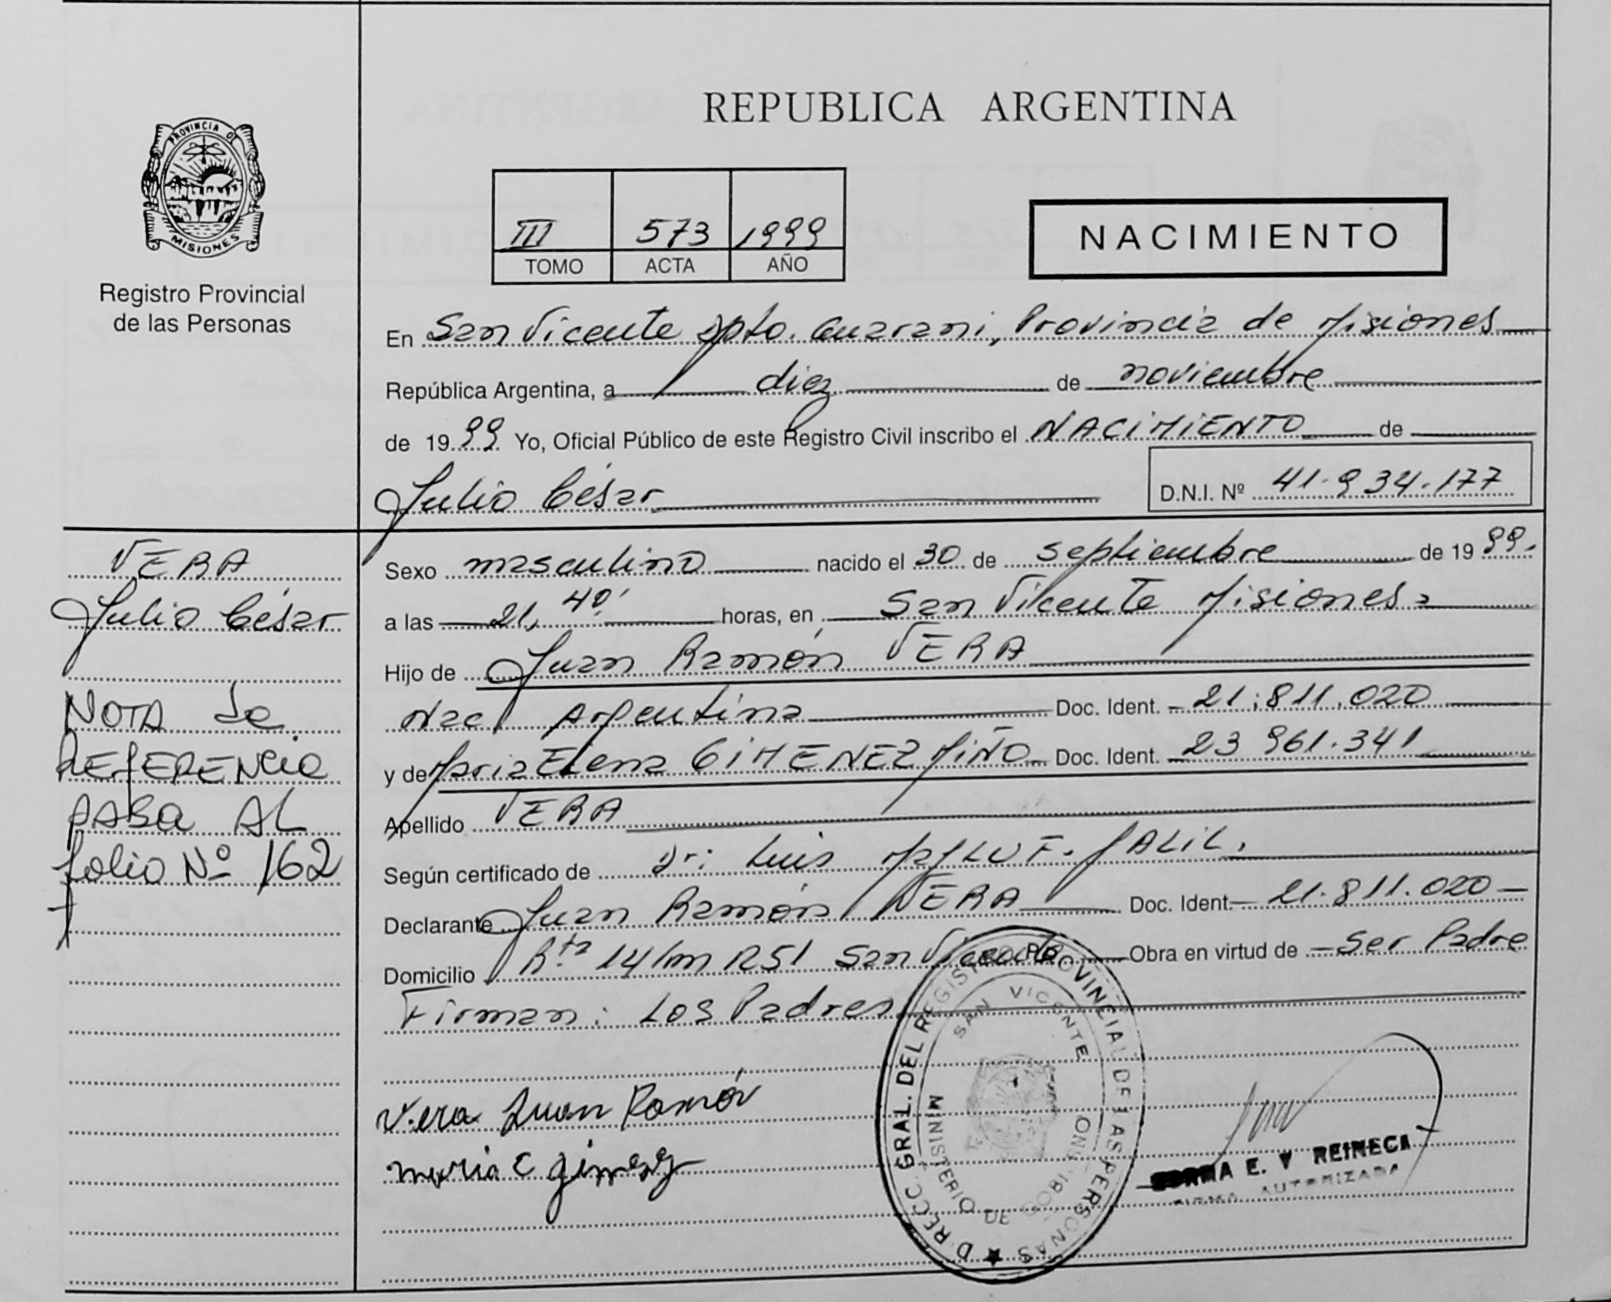 REPUBLICA ARGENTINA
PROVINCIA DE
MISIONES
Registro Provincial
de las Personas
III 573 1999
TOMO ACTA AÑO
NACIMIENTO
En San Vicente Dpto. Guarani, Provincia de Misiones
República Argentina, a diez de noviembre
de 1999 Yo, Oficial Público de este Registro Civil inscribo el NACIMIENTO de
Julio César D.N.I. Nº 41.934.177
VERA
Julio César
NOTA de
REFERENCIA
PASA AL
folio Nº 162
Sexo masculino nacido el 30 de septiembre de 1999.
a las 21,40' horas, en San Vicente Misiones
Hijo de Juan Ramón VERA
Nac Argentina Doc. Ident. 21.811.020
y de Maria Elena GIMENEZ MIÑO Doc. Ident. 23 961.341
Apellido VERA
Según certificado de Dr: Luis JALIL.
Declarante Juan Ramón VERA Doc. Ident. 21.811.020
Domicilio Rta 14 km 1251 San Vicente Obra en virtud de Ser Padre
Firman: Los Padres
Vera Juan Ramón
maria E gimenez
DIRECC. GRAL. DEL REGISTRO PROVINCIAL DE LAS PERSONAS
SAN VICENTE
MINISTERIO DE GOBIERNO
E. V REINECA
FIRMA AUTORIZADA